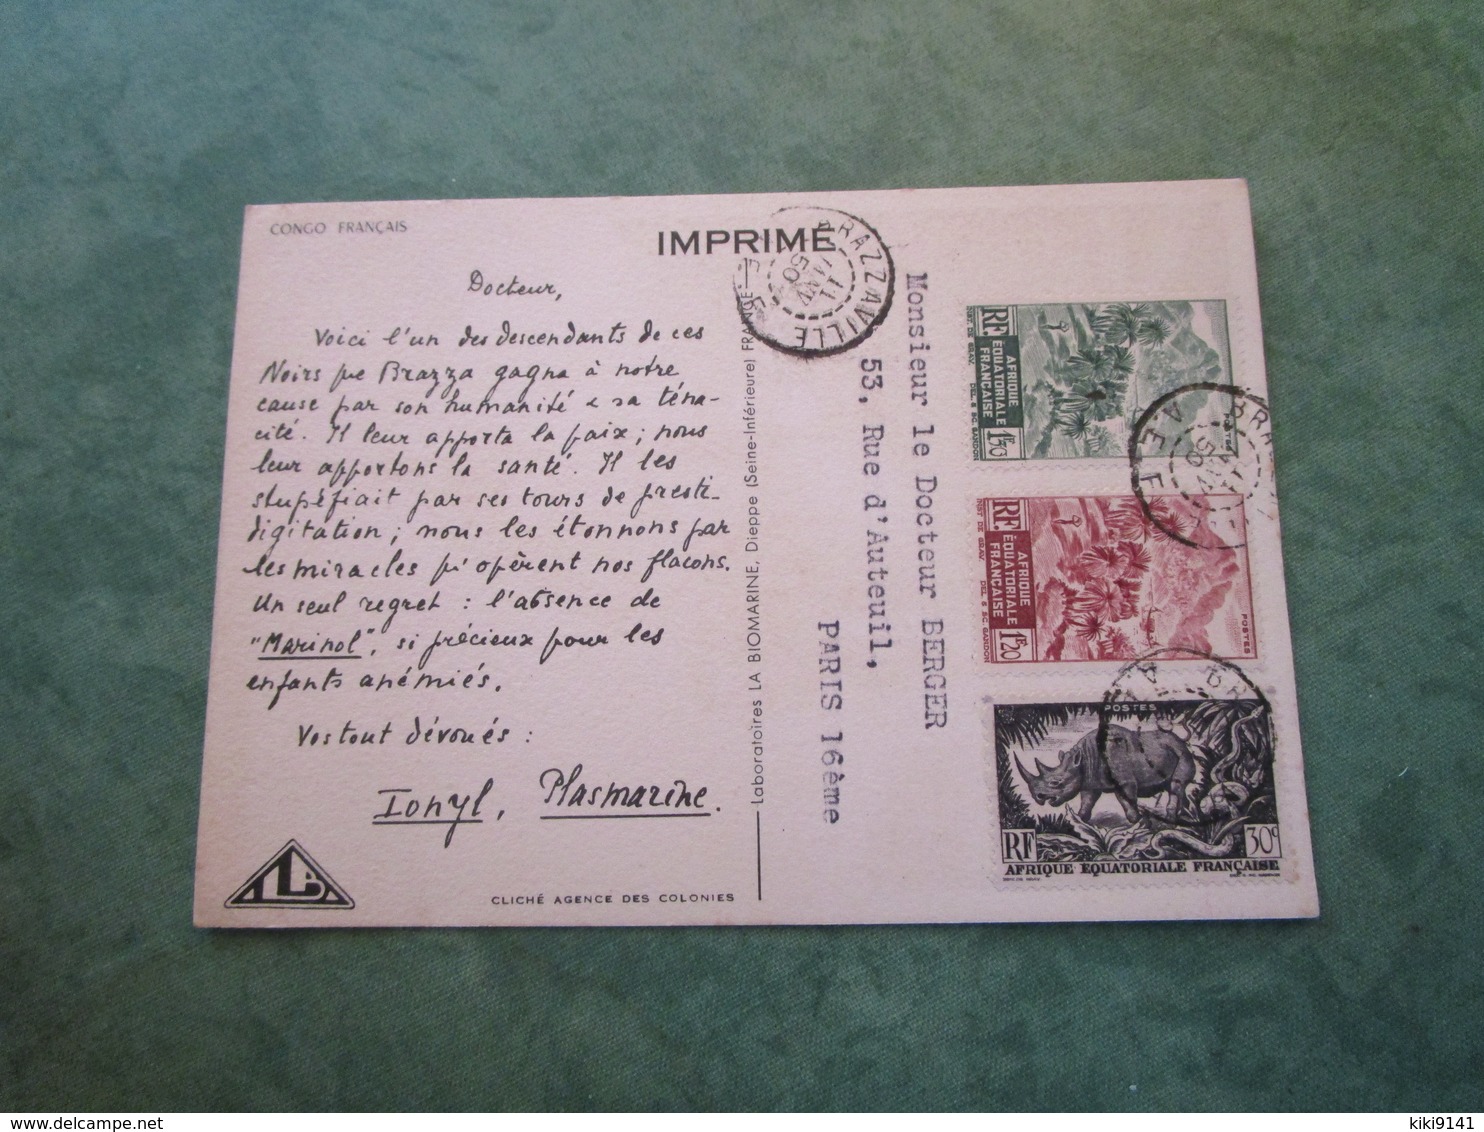 CONGO FRANÇAIS
IMPRIMÉ
Docteur,
Voici l'un des descendants de ces
Noirs que Brazza gagna à notre
cause par son humanité & sa téna-
cité. Il leur apporta la paix ; nous
leur apportons la santé. Il les
stupéfiait par ses tours de presti-
digitation ; nous les étonnons par
les miracles qu'opèrent nos flacons.
Un seul regret : l'absence de
"Marinol", si précieux pour les
enfants anémiés.
Vos tout dévoués :
Ionyl, Plasmarine.
CLICHÉ AGENCE DES COLONIES
Laboratoires LA BIOMARINE, Dieppe (Seine-Inférieure) FRANCE
Monsieur le Docteur BERGER
53, Rue d'Auteuil,
PARIS 16ème
BRAZZAVILLE
11
JANV
50
RF.
AFRIQUE
ÉQUATORIALE
FRANÇAISE
1F50
POSTES
INST. DE GRAV.
DEL. & SC. GANDON
BRAZ
A.E.F
50
RF.
AFRIQUE
ÉQUATORIALE
FRANÇAISE
1F20
POSTES
INST. DE GRAV.
DEL. & SC. GANDON
POSTES
RF
30c
AFRIQUE EQUATORIALE FRANÇAISE
kiki9141
delcampe.net